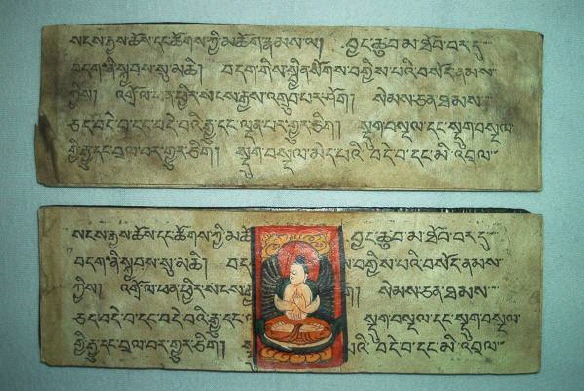 སངས་རྒྱས་ཆོས་དང་ཚོགས་ཀྱི་མཆོག་རྣམས་ལ། བྱང་ཆུབ་མ་ཐོབ་བར་དུ་
བདག་ནི་སྐྱབས་སུ་མཆི། བདག་གིས་སྦྱིན་སོགས་བགྱིས་པའི་བསོད་ནམས་
ཀྱིས། འགྲོ་ལ་ཕན་ཕྱིར་སངས་རྒྱས་འགྲུབ་པར་ཤོག། སེམས་ཅན་ཐམས་
ཅད་བདེ་བ་དང་བདེ་བའི་རྒྱུ་དང་ལྡན་པར་གྱུར་ཅིག། སྡུག་བསྔལ་དང་སྡུག་བསྔལ་
གྱི་རྒྱུ་དང་བྲལ་བར་གྱུར་ཅིག། སྡུག་བསྔལ་མེད་པའི་བདེ་བ་དང་མི་འབྲལ་
སངས་རྒྱས་ཆོས་དང་ཚོགས་ཀྱི་མཆོ བྱང་ཆུབ་མ་ཐོབ་བར་དུ་
བདག་ནི་སྐྱབས་སུ་མཆི། བད བགྱིས་པའི་བསོད་ནམས་
ཀྱིས། འགྲོ་ལ་ཕན་ཕྱིར་སངས་རྒྱས སེམས་ཅན་ཐམས་
ཅད་བདེ་བ་དང་བདེ་བའི་རྒྱུ་དང་ སྡུག་བསྔལ་དང་སྡུག་བསྔལ་
གྱི་རྒྱུ་དང་བྲལ་བར་གྱུར་ཅིག། པའི་བདེ་བ་དང་མི་འབྲལ་